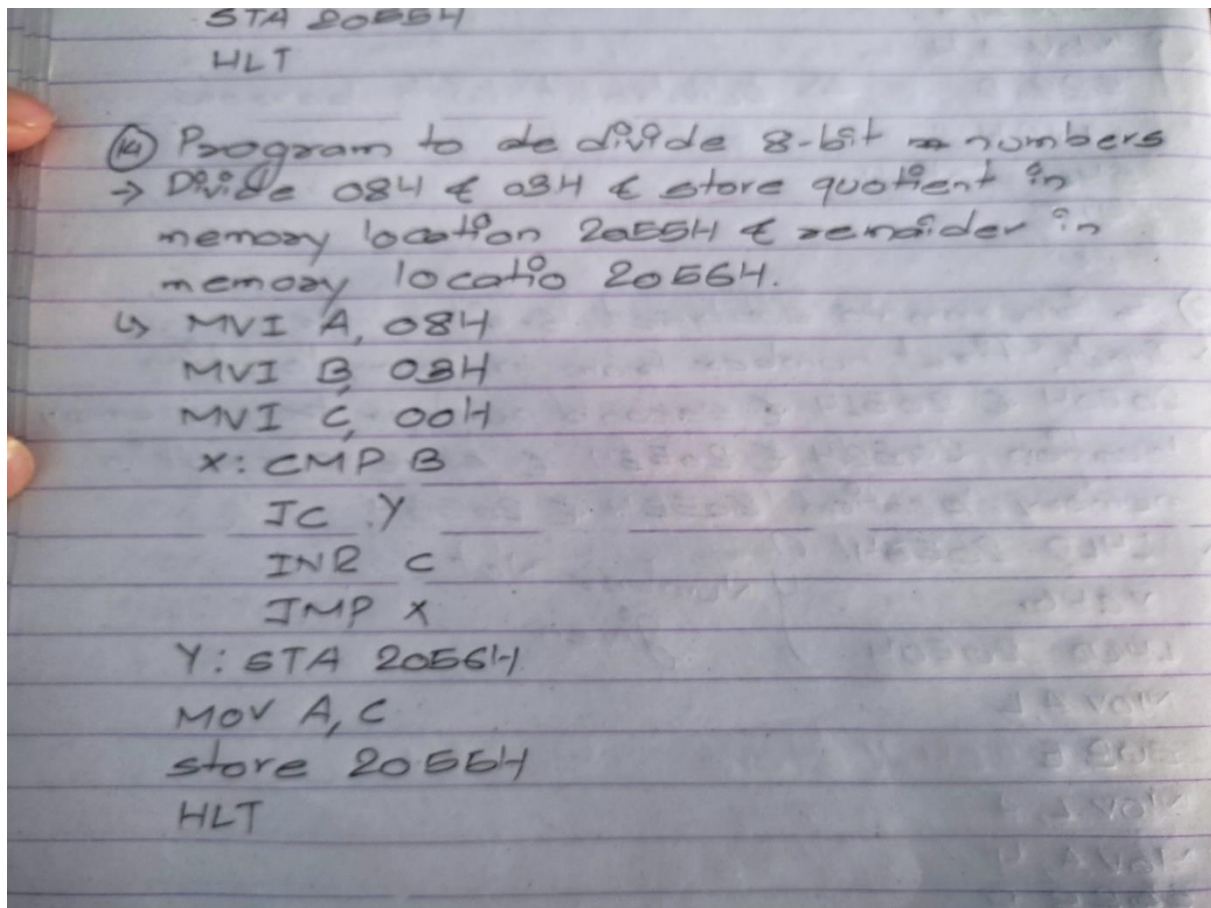 STA 2055H
HLT
(14) Program to de divide 8-bit numbers
→ Divide 08H & 03H & store quotient in
memory location 2055H & remaider in
memory locatio 2056H.
↳ MVI A, 08H
MVI B, 03H
MVI C, 00H
X: CMP B
JC Y
INR C
JMP X
Y: STA 2056H
MOV A, C
store 2055H
HLT